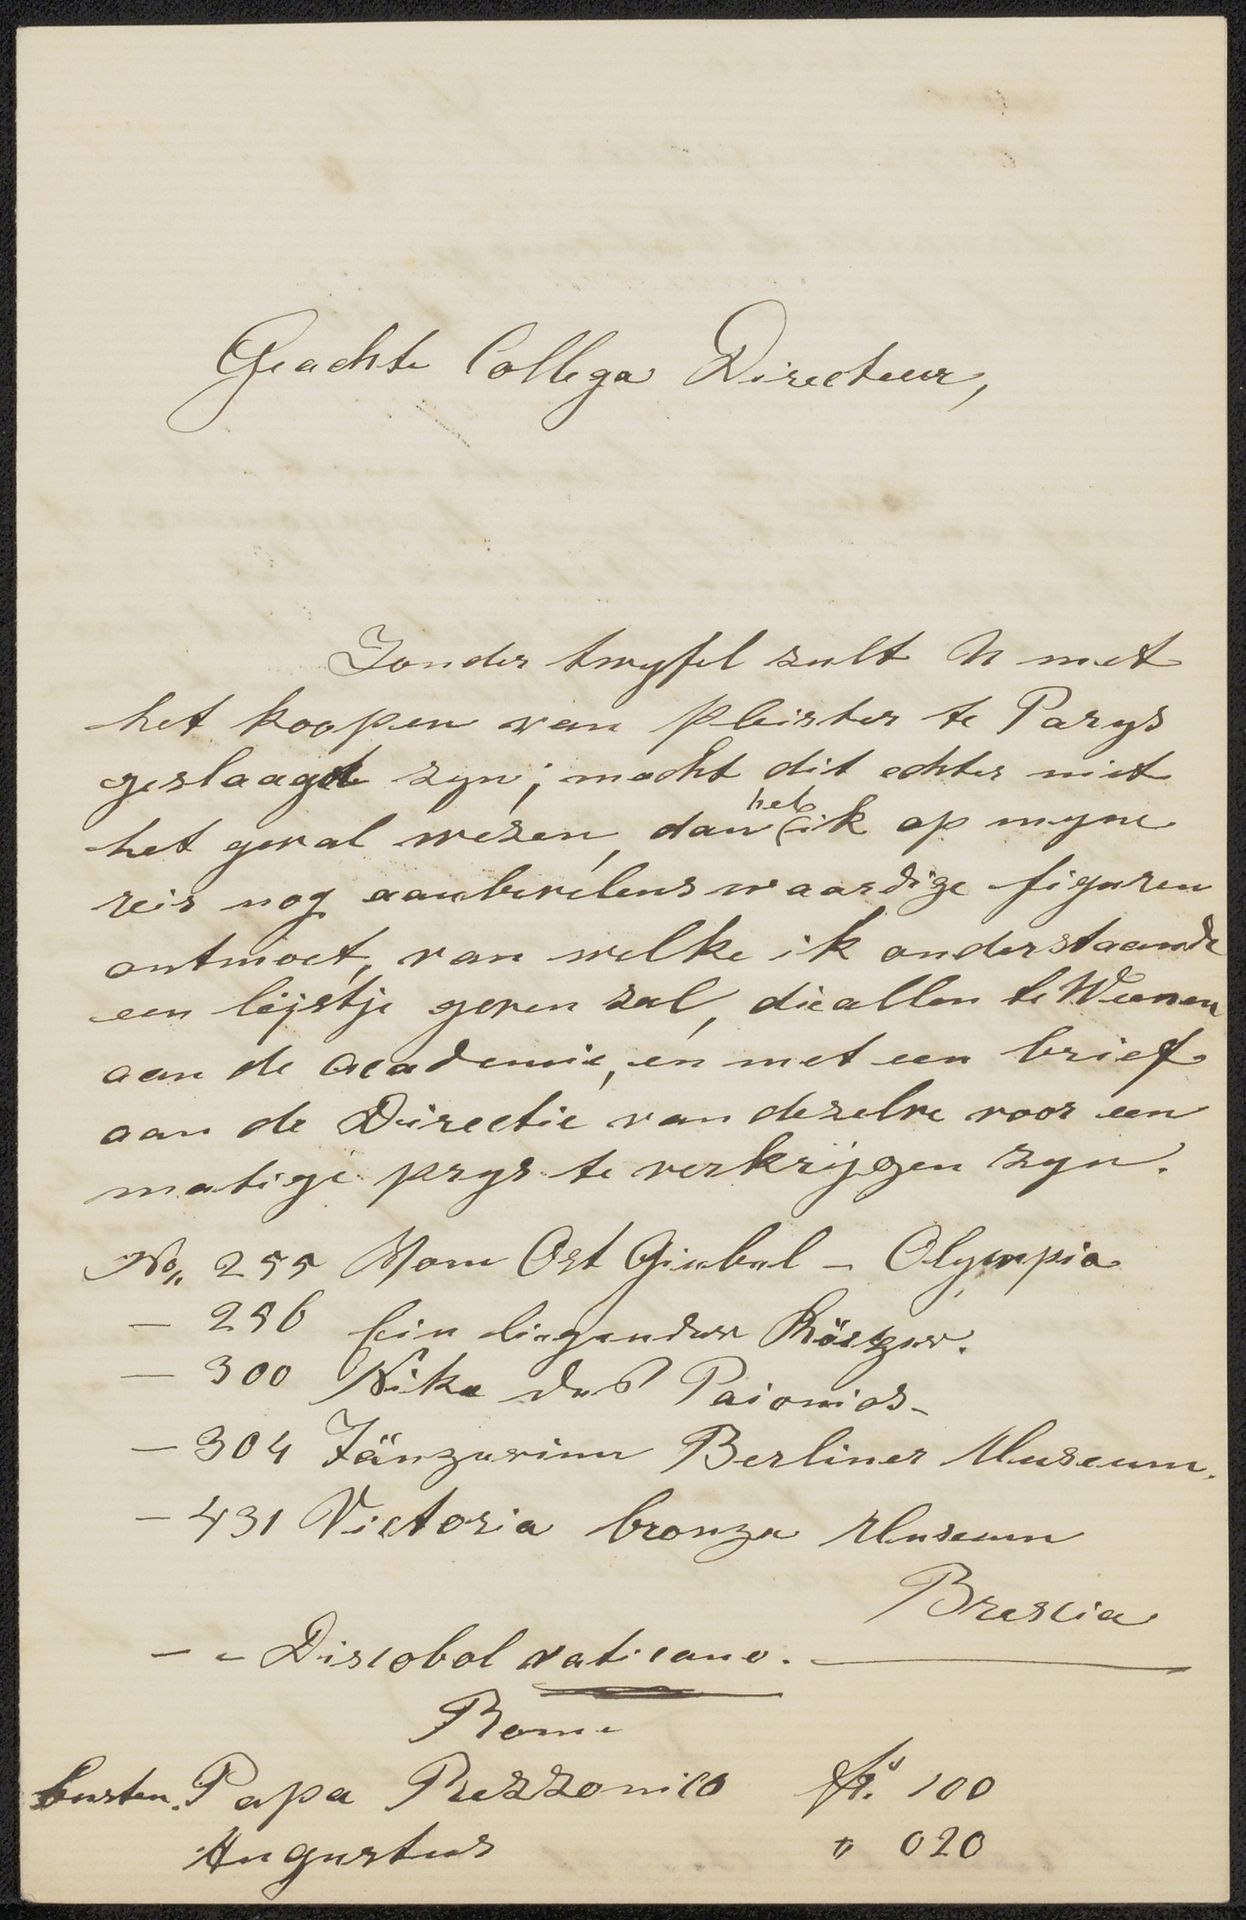 Geachte Collega Directeur,
Zonder twyfel zult U met
het koopen van pleister te Parys
geslaagd zyn; mocht dit echter niet
het geval wezen, dan heb ik op myne
reis nog aanbevelenswaardige figuren
ontmoet, van welke ik onderstaande
een lijstje geven zal, die allen te Weenen
aan de Academie, en met een brief
aan de Directie van dezelve voor een
matige prys te verkrijgen zyn.
No, 255 Vom Ost Giebel - Olympia
- 256 Ein liegender
- 300 Nike des Paionios-
- 304 Tänzerinn Berliner Museum.
- 431 Victoria bronze Museum
Brescia
- - Discobol vaticano.
Rome
busten. Papa Rezzonico fr. 100
Augustus " 020